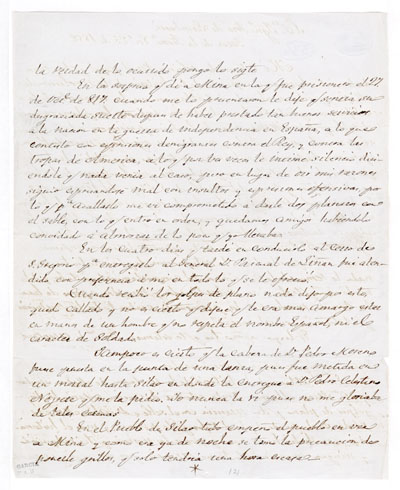 la verdad de lo ocurrido pongo lo sigte.
En la sorpresa q. di a Mina en la q. fue prisionero el 27
de Oct. de 817. cuando me lo presentaron le dije q. sentia su
desgraciada suerte despues de haber prestado tan buenos servicios
a la nacion en la guerra de independencia en España, a lo que
contestó con espresiones denigrantes contra el Rey, y contra las
tropas de America, a lo q. por tra vez le insinué silencio dici-
endole q. nada venia al caso, pero en lugar de oir mis razones
siguió espresandose mal con insultos y espresiones ofensivas, por
lo q. pa. acallarlo me vi comprometido á darle dos planazos con
el sable, con lo q. entró en orden, y quedamos amigos habiendole
convidado á almorzar de lo poco q. yo llevaba.
En los cuatro dias q. tardé en conducirlo al Cerro de
S. Gregorio pa. entregarlo al General Dn. Pascual de Liñan fue aten-
dido con preferencia a mi en todo lo q. se le ofreció.
Cuando recibió los golpes de plano nada dijo por esto,
quedó callado y no es cierto q. dijese, q. le era mas amargo estar
en manos de un hombre q. no respeta el nombre Español, ni el
caracter de Soldado.
Tampoco es cierto q. la Cabeza de Dn. Pedro Moreno
fuese puesta en la punta de una lanza, pues fue metida en
un morral hasta Silao en donde la entregué a Dn. Pedro Celestino
Negrete q. me la pidió. Yo nunca la vi pues no me gloriaba
de tales
En el Pueblo de Silao todo empeño el pueblo en ver
a Mina y como era ya de noche se tomó la precaucion de
ponerle grillos, q. solo tendria una hora escasa.